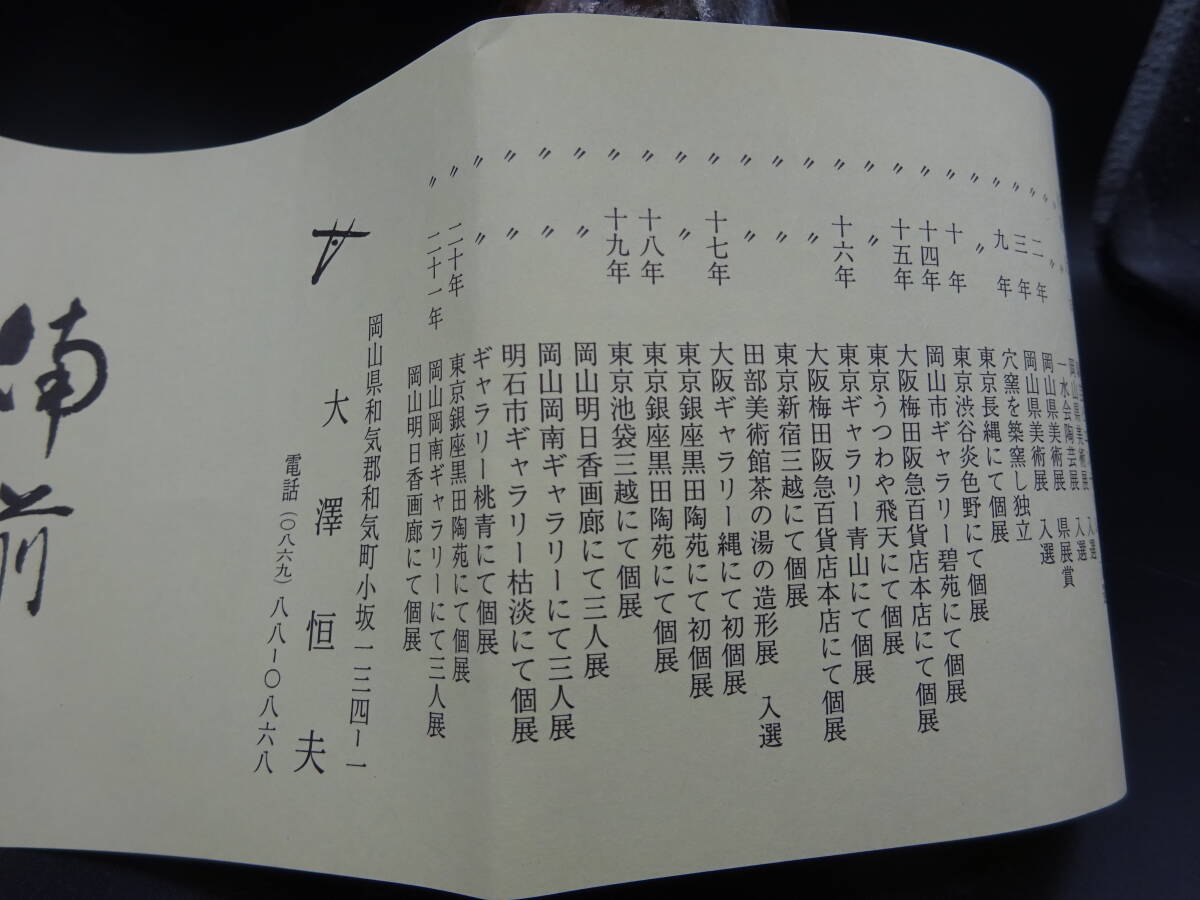 岡山県美術展 入選
〃 〃 一水会陶芸展 入選
〃 二年 岡山県美術展 県展賞
〃 三年 岡山県美術展 入選
〃 九年 穴窯を築窯し独立
〃 〃 東京長縄にて個展
〃 十年 東京渋谷炎色野にて個展
〃 十四年 岡山市ギャラリー碧苑にて個展
〃 十五年 大阪梅田阪急百貨店本店にて個展
〃 〃 東京うつわや飛天にて個展
〃 十六年 東京ギャラリー青山にて個展
〃 〃 大阪梅田阪急百貨店本店にて個展
〃 〃 東京新宿三越にて個展
〃 〃 田部美術館茶の湯の造形展 入選
〃 十七年 大阪ギャラリー縄にて初個展
〃 〃 東京銀座黒田陶苑にて初個展
〃 十八年 東京銀座黒田陶苑にて個展
〃 十九年 東京池袋三越にて個展
〃 〃 岡山明日香画廊にて三人展
〃 〃 岡山岡南ギャラリーにて三人展
〃 〃 明石市ギャラリー枯淡にて個展
〃 〃 ギャラリー桃青にて個展
〃 二十年 東京銀座黒田陶苑にて個展
〃 二十一年 岡山岡南ギャラリーにて三人展
岡山明日香画廊にて個展
岡山県和気郡和気町小坂一二三四ー一
大澤恒夫
電話(〇八六九)八八ー〇八六八
備前